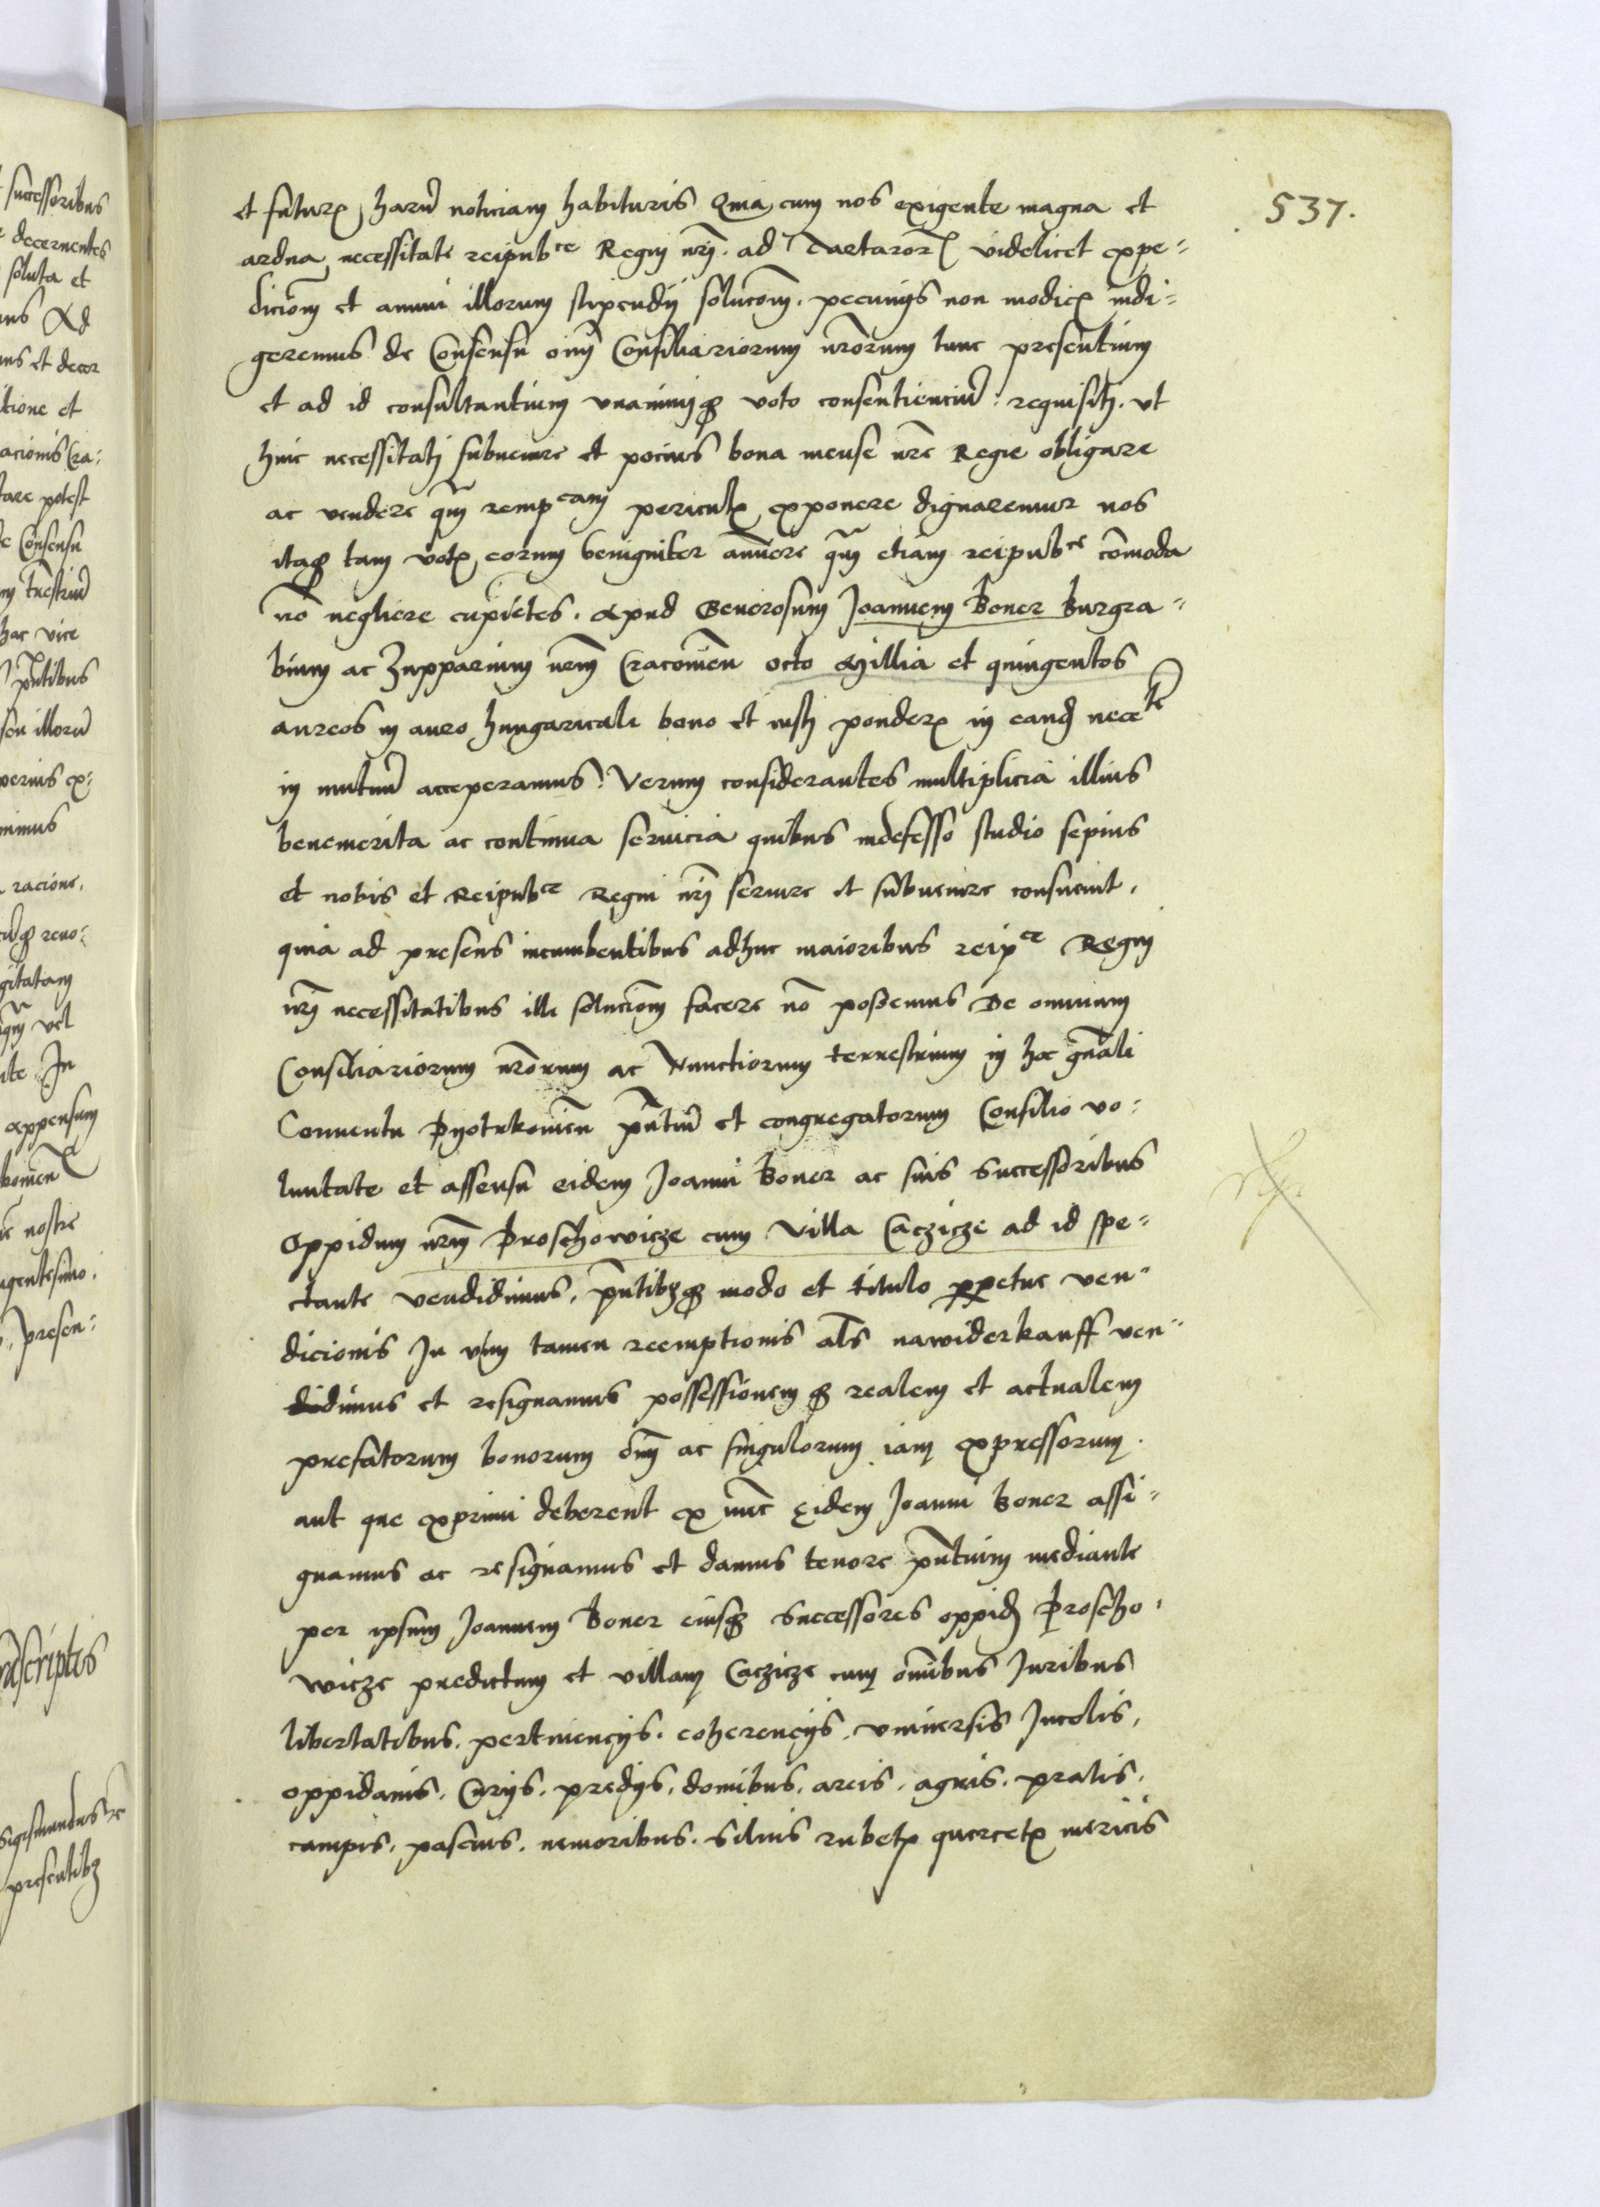 537.
et futuris harum noticiam habituris Quia cum nos exigente magna et
ardua necessitate reipubce Regni nri ad Tartarorum videlicet expe-
dicionem et annui illorum stipendij solucionem pecunijs non modicis indi-
geremus de Consensu omni Consiliariorum nrorum tunc presentium
et ad id consultantium unanimiq voto consentiencium requisiti ut
huic necessitati subvenire et pocius bona mense nre Regie obligare
ac vendere qm rempcam periculis exponere dignaremur nos
itaq tam votis eorum benigniter annuere qm etiam reipubce comoda
no negligere cupientes. Apud Generosum Joannem Boner Burgra-
bium ac Zupparium nrm Cracovien octo Millia et quingentos
aureos in auro hungaricali bono et iusti ponderis in eand necete
in mutuum acceperamus. Verum considerantes multiplicia illius
benemerita ac continua servicia quibus indefesso studio sepius
et nobis et Reipubce Regni nri servire et subvenire consuevit,
quia ad presens incumbentibus adhuc maioribus reipce Regni
nri necessitatibus illi solucionem facere no possemus De omnium
Consiliariorum nrorum ac Nunctiorum terrestrium in hoc gnali
Conventu Pyotrkovien pntium et congregatorum Consilio vo-
luntate et assensu eidem Joanni Boner ac suis successoribus
Oppidum nrm Proschowicze cum villa Caczicze ad id spe-
ctante vendidimus, pntibusq modo et titulo perpetue ven-
dicionis In vim tamen reemptionis als nawiderkauff ven-
didimus et resignamus possessionem q realem et actualem
prefatorum bonorum omni ac singulorum iam expressorum
aut que exprimi deberent ex nunc eidem Joanni Boner assi-
gnamus ac resignamus et damus tenore pntium mediante
per ipsum Joannem Boner eiusq successores oppid Proscho-
wicze predictum et villam Caczicze cum omibus Juribus
libertatibus, pertinencijs, coherencijs, universis Incolis,
oppidanis, Curijs, predijs, domibus, areis, agris, pratis,
campis, pascuis, nemoribus, silvis rubetis quercetis mericis